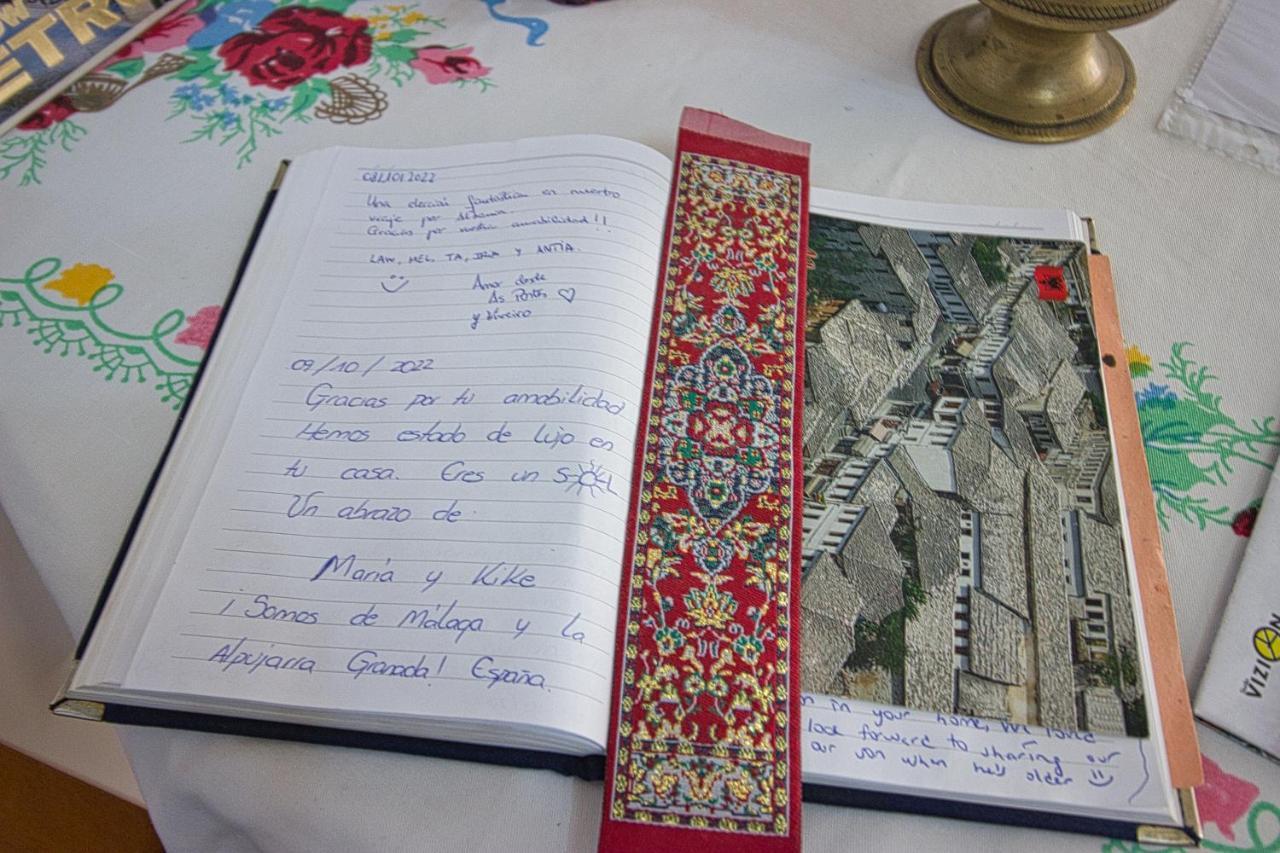 W
ETRO
08/10/2022
Una elección fantástica en nuestro
viaje por
Gracias por vuestra amabilidad!!
LAW, MEL, TA, y ANTÍA.
Amor desde
As Pontes ♡
y Viveiro
09/10/2022
Gracias por tu amabilidad
Hemos estado de lujo en
tu casa. Eres un SOL
Un abrazo de:
María y Kike
¡Somos de Málaga y la
Alpujarra Granada! España.
n in your home, we love
look forward to sharing our
our son when he's older
VIZION